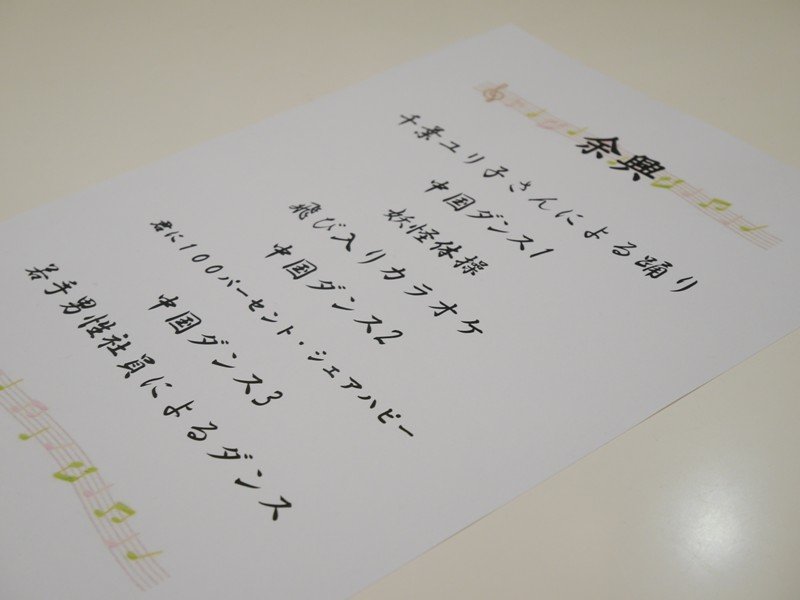 余興
千葉ユリ子さんによる踊り
中国ダンス1
妖怪体操
飛び入りカラオケ
中国ダンス2
君に100パーセント・シェアハピー
中国ダンス3
若手男性社員によるダンス